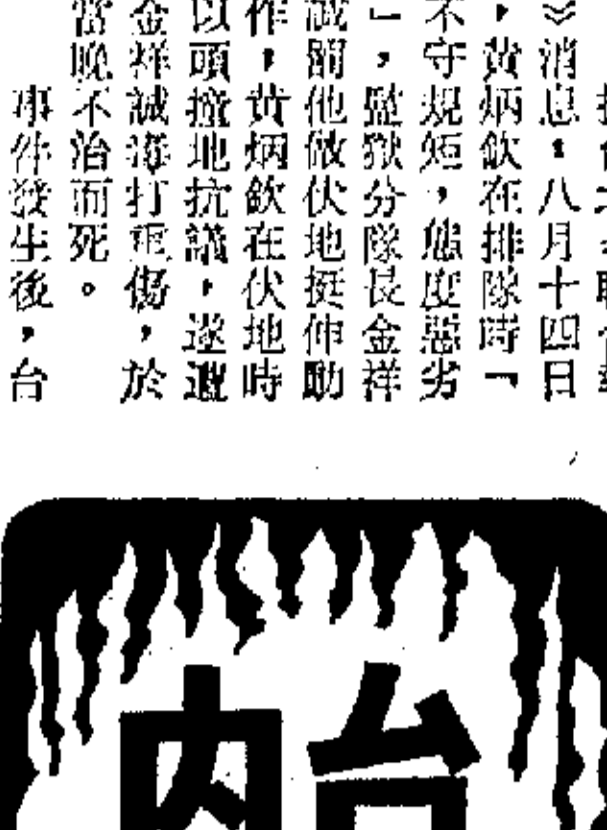 》消息：八月十四日
，黃炳欽在排隊時「
不守規矩，態度惡劣
」，監獄分隊長金祥
誠罰他做伏地挺伸動
作，黃炳欽在伏地時
以頭撞地抗議，遂遭
金祥誠毒打重傷，於
當晚不治而死。
事件發生後，台
台
內